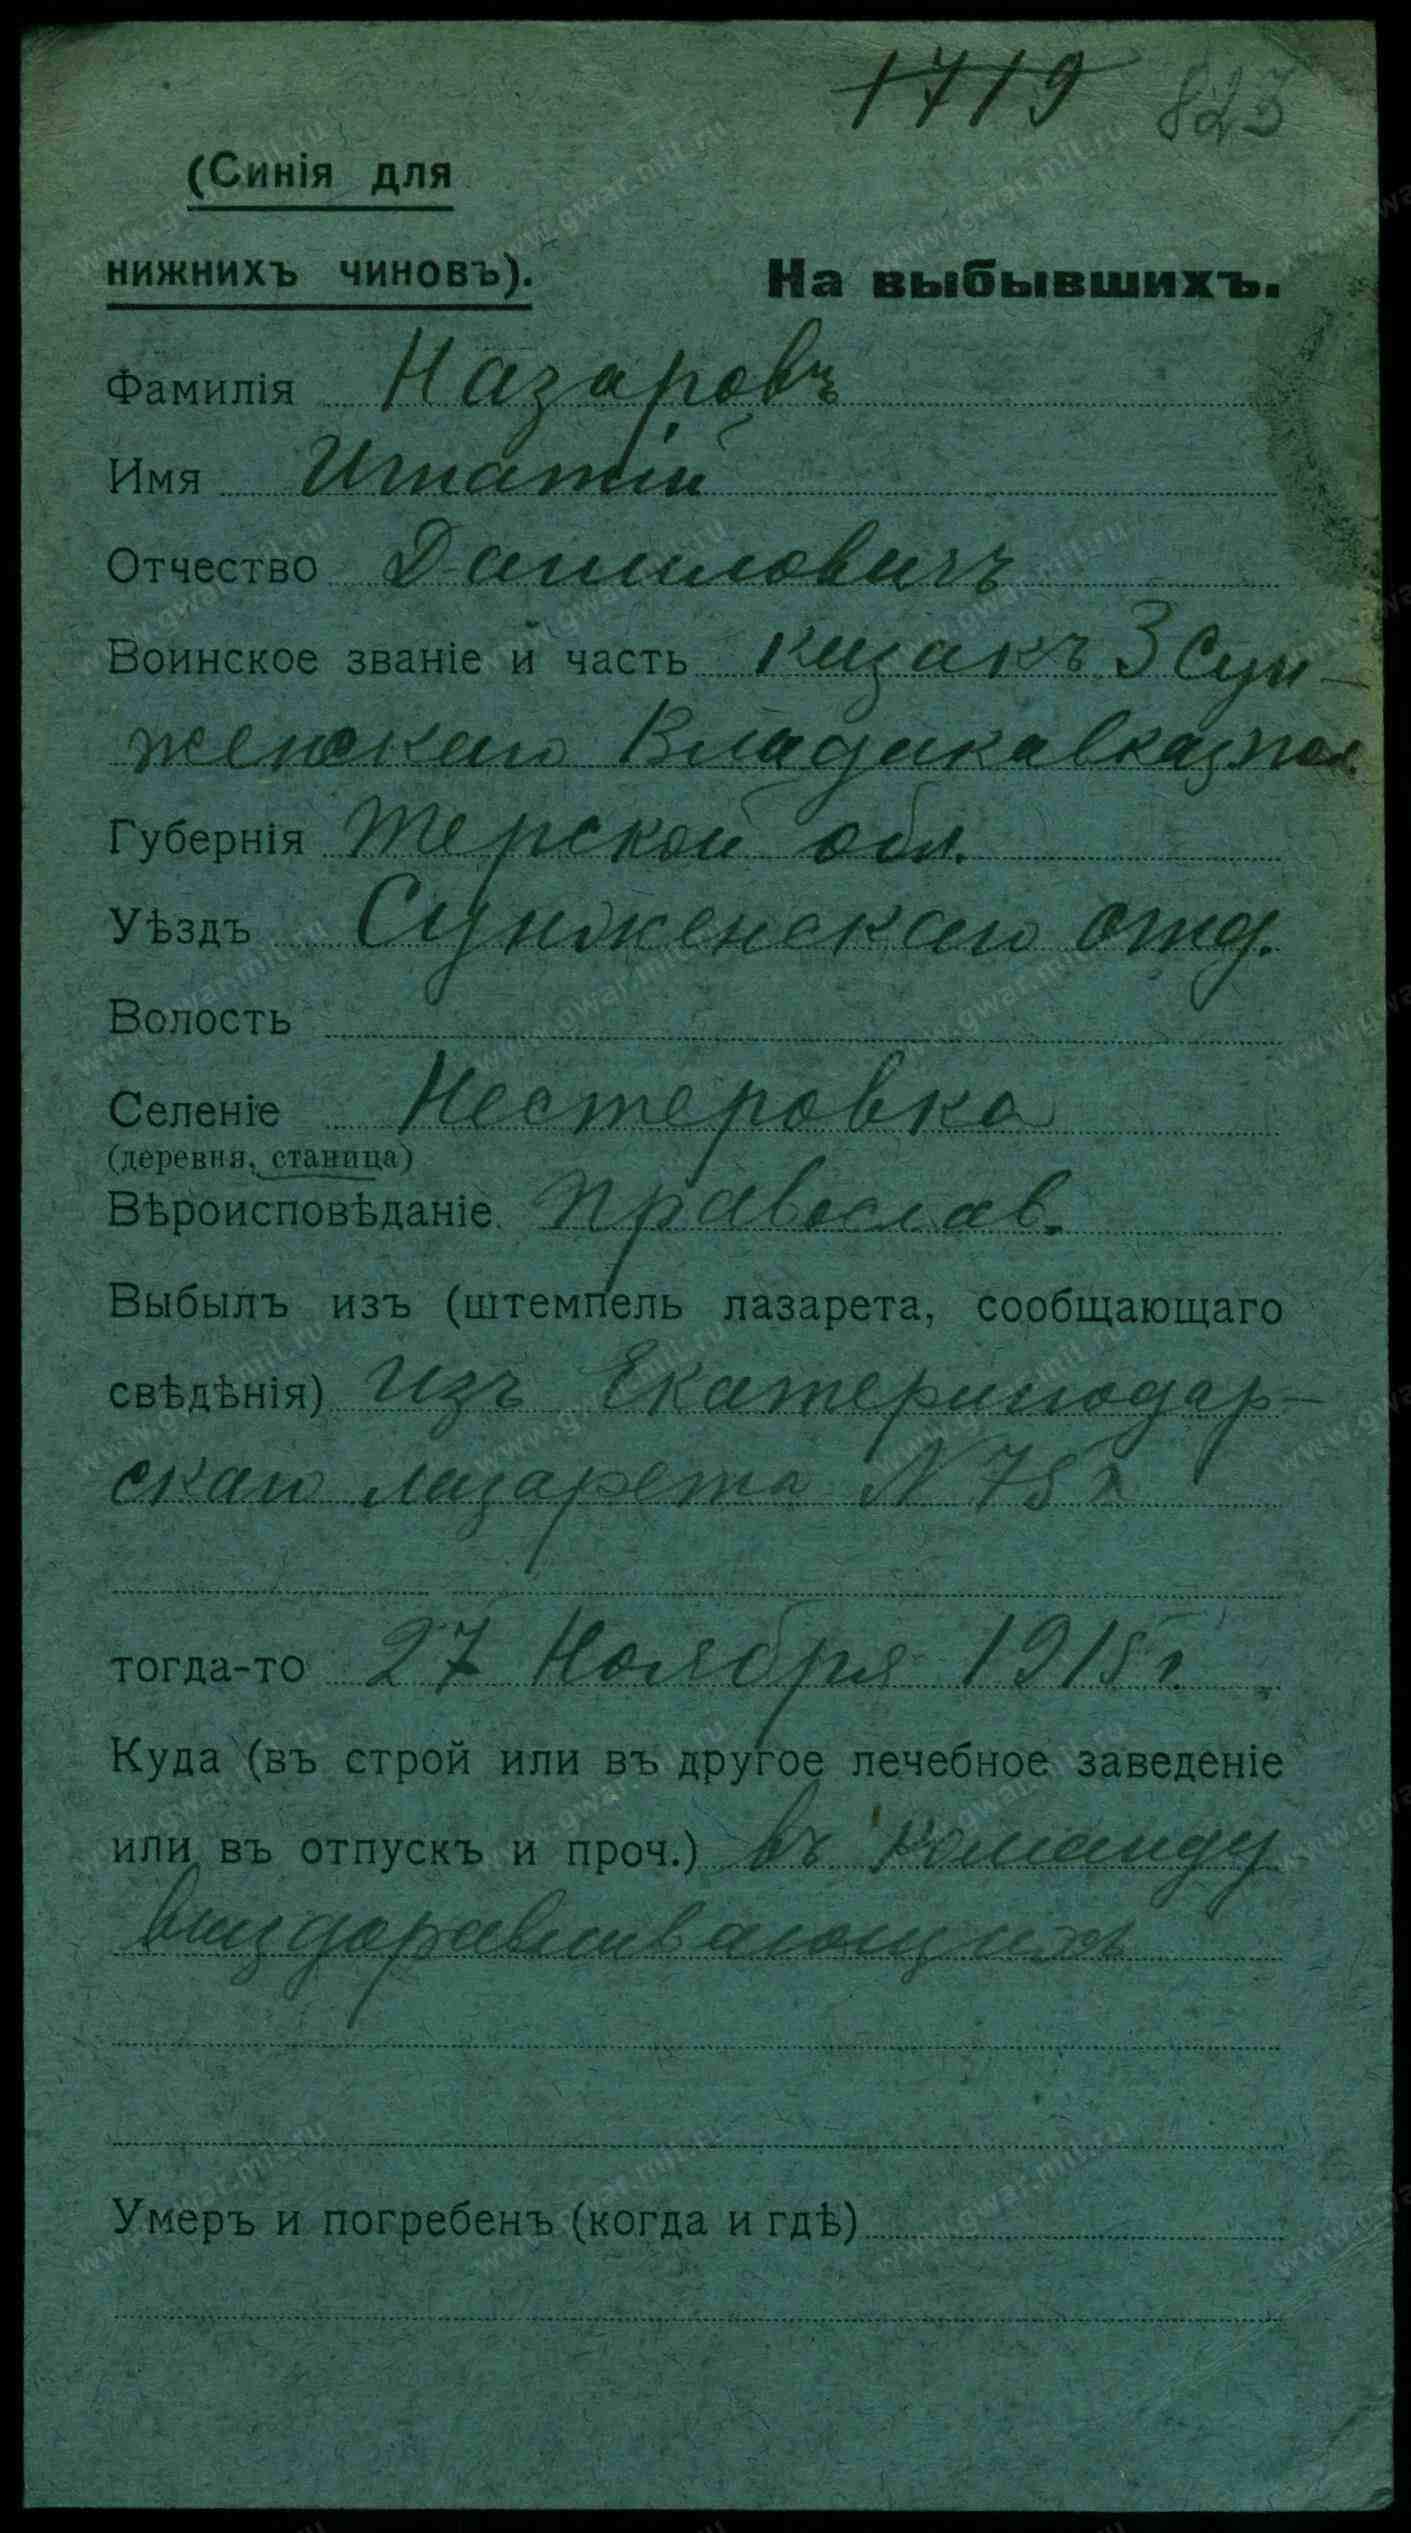 1719 823
(Синія для
нижнихъ чиновъ).
На выбывшихъ.
Фамилія Назаровъ
Имя Игнатій
Отчество Даниловичъ
Воинское званіе и часть казакъ 3 Сун-
женскаго Владикавказ пол.
Губернія Терской обл.
Уѣздъ Сунженскаго отд.
Волость
Селеніе Нестеровка
(деревня, станица)
Вѣроисповѣданіе Православ.
Выбылъ изъ (штемпель лазарета, сообщающаго
свѣдѣнія) Изъ Екатеринодар-
скаго лазарета N
тогда-то 27 Ноября 1915 г.
Куда (въ строй или въ другое лечебное заведеніе
или въ отпускъ и проч.) въ команду
выздаравливающихъ
Умеръ и погребенъ (когда и гдѣ)
www.gwar.mil.ru